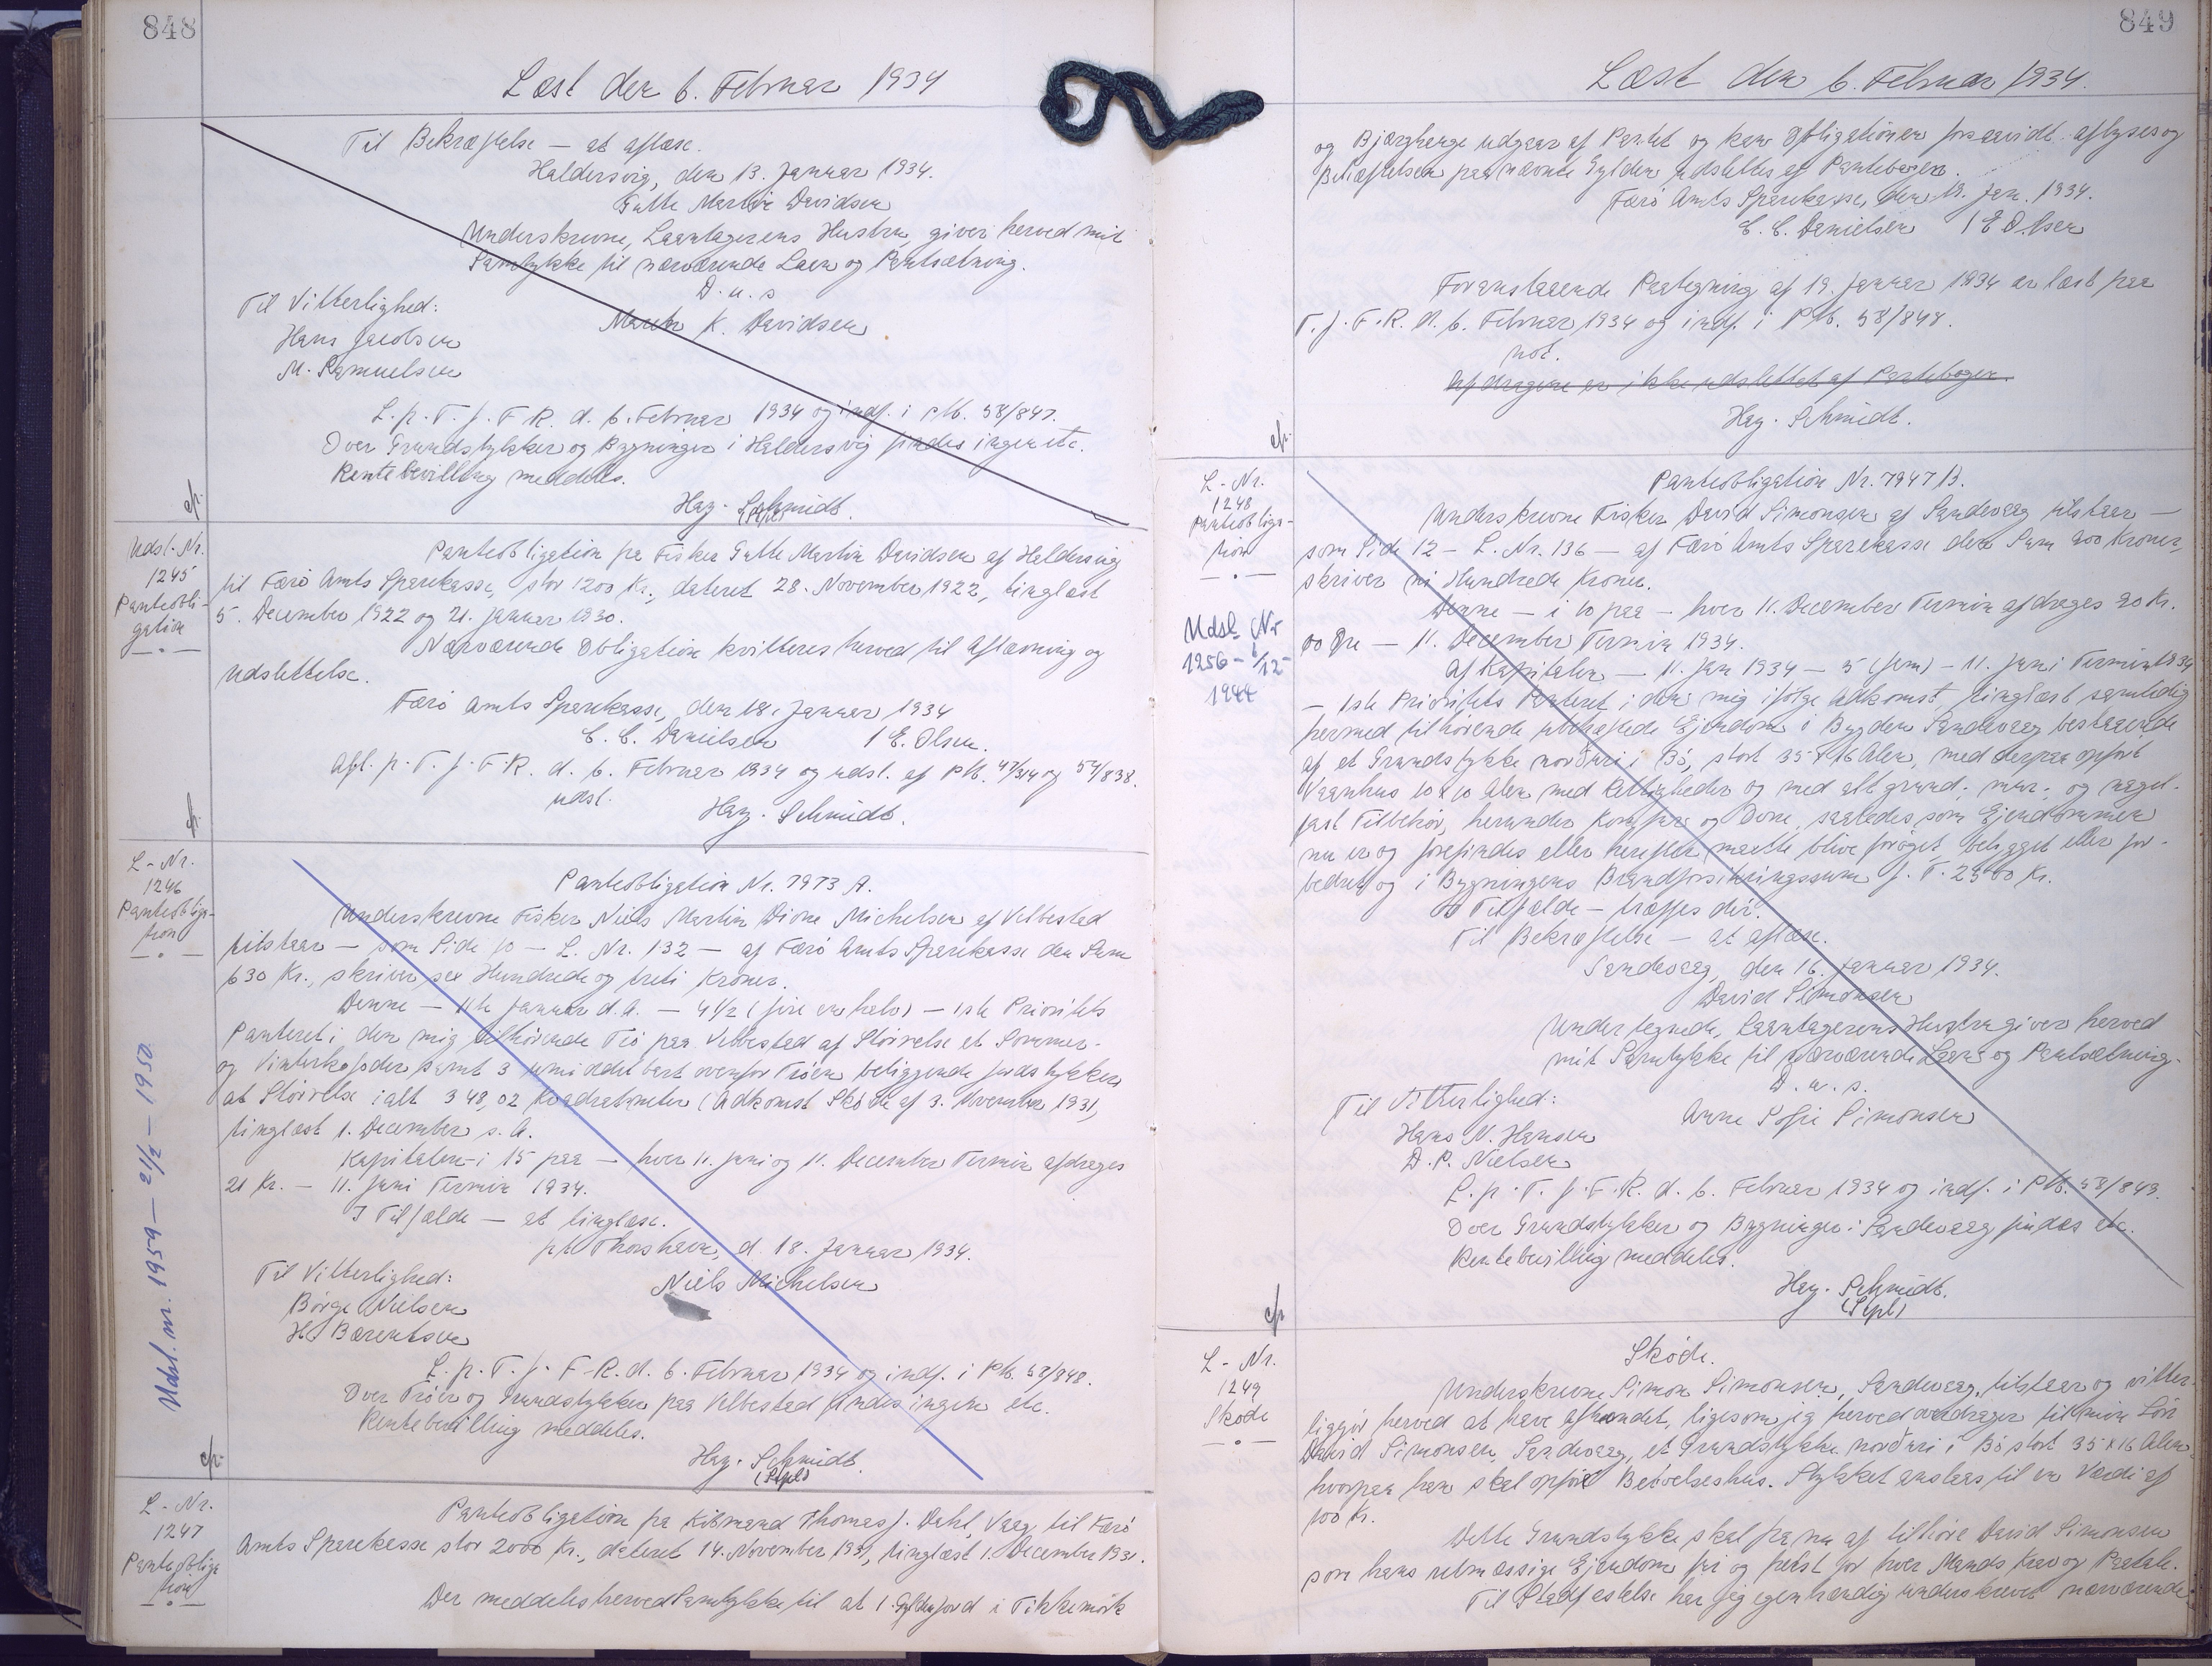 848
Læst den 6. Februar 1934
Til Bekræftelse — at aflæse.
Haldersvig, den 13. Januar 1934.
Gutte Martin Davidsen
Underskrevne, Laantagerens Hustru, giver herved mit
Samtykke til nærværende Laan og Pantsætning.
D. u. s
Til Vitterlighed:
Maren K. Davidsen
Hans Jacobsen
M. Samuelsen
L. p. T. f. F. R. d. 6. Februar 1934 og indf. i Ptb. 58/847.
Over Grundstykker og Bygninger i Haldersvig findes ingen etc.
Rentebevilling meddeles.
Hag. Schmidt.
(Stpl)
Udsl. Nr.
1245
Panteobli-
gation
Panteobligation fra Fisker Gutte Martin Davidsen af Haldersvig
til Færø Amts Sparekasse, stor 1200 Kr., dateret 28. November 1922, tinglæst
5. December 1922 og 21. Januar 1930.
Nærværende Obligation kvitteres herved til Aflæsning og
Udslettelse.
Færø Amts Sparekasse, den 18. Januar 1934
C. C. Danielsen / E. Olsen.
Afl. p. T. f. F. R. d. 6. Februar 1934 og udsl. af Ptb. 47/314 og 54/838.
udsl.
Hag. Schmidt.
L-Nr.
1246
Panteobliga-
tion
Panteobligation Nr. 7973 A.
Underskrevne Fisker Niels Martin Dione Michelsen af Velbestad
tilstaar — som Side 10 — L. Nr. 132 — af Færø Amts Sparekasse den Sum
630 Kr., skriver sex Hundrede og treti Kroner.
Denne — 11te Januar d. A. — 4½ (fire en halv) — 1ste Prioritets
Panteret i den mig tilhørende Trø paa Velbestad af Størrelse et Sommer-
og Vinterkofoder samt 3 umiddelbart ovenfor Trøen beliggende Jordstykker
at Størrelse ialt 348,02 Kvadratmeter (Adkomst Skøde af 3. November 1931,
tinglæst 1. December s. A.
Kapitalen i 15 paa — hver 11. Juni og 11. December Termin afdrages
21 Kr. — 11. Juni Termin 1934.
I Tilfælde — at tinglæse.
p.t. Thorshavn, d. 18. Januar 1934.
Til Vitterlighed:
Niels Michelsen
Børge Nielsen
H. Bærentsen
L. p. T. f. F. R. d. 6. Februar 1934 og indf. i Ptb. 58/848.
Over Trøer og Grundstykker paa Velbestad findes ingen etc.
Rentebevilling meddeles.
Hag. Schmidt.
(Stpl)
Udsl. nr. 1959 — 21/2 — 1950.
L-Nr.
1247
Panteobliga
tion
Panteobligation fra Købmand Thomas J. Dahl, Vaag, til Færø
Amts Sparekasse stor 2000 Kr., dateret 14. November 1931, tinglæst 1. December 1931.
Der meddeles herved Samtykke til at 1 Gylden Jord i
849
Læst den 6. Februar 1934.
og udgaar af Pantet og kan Obligationen forsaavidt aflyses og
Behæftelsen paa nævnte Gylden udslettes af Pantebogen.
Færø Amts Sparekasse, den 19. Jan. 1934.
C. C. Danielsen / E Olsen
Foranstaaende Paategning af 19. Januar 1934 er læst paa
T. f. F. R. d. 6. Februar 1934 og indf. i Ptb. 58/848.
not.
Afdragene er ikke udslettet af Pantebogen.
Hag. Schmidt.
L-Nr.
1248
Panteobliga-
tion
Udsl. Nr
1256 — 1/12
1944
Panteobligation Nr. 7947 B.
Underskrevne Fisker David Simonsen af Sandevaag tilstaar —
som Side 12 — L. Nr. 136 — af Færø Amts Sparekasse den Sum 900 Kroner,
skriver ni Hundrede Kroner.
Denne — i 10 paa — hver 11. December Termin afdrages 90 Kr.
00 Øre — 11. December Termin 1934.
Af Kapitalen — 11. Jan 1934 — 5 (fem) — 11. Juni Termin 1934
— 1ste Prioritets Panteret i den mig ifølge Adkomst, tinglæst samtidig
hermed tilhørende ubehæftede Ejendom i Bygden Sandevaag bestaaende
af et Grundstykke norðuri i Bø, stort 35 x 16 Alen, med derpaa opført
Vaanhus 10 x 10 Alen med Rettigheder og med alt grund-, mur- og nagel-
fast Tilbehør, herunder Komfur og Ovne, saaledes som Ejendommen
nu er og forefindes eller herefter maatte blive forøget, bebygget eller for-
bedret og i Bygningens Brandforsikringssum f. T. 2500 Kr.
I Tilfælde — træffes dér.
Til Bekræftelse — at aflæse.
Sandevaag, den 16. Januar 1934.
David Simonsen
Undertegnede, Laantagerens Hustru giver herved
mit Samtykke til nærværende Laan og Pantsætning.
D. u. s.
Til Vitterlighed:
Anne Sofie Simonsen
Hans N. Hansen
D. P. Nielsen
L. p. T. f. F. R. d. 6. Februar 1934 og indf. i Ptb. 58/849.
Over Grundstykker og Bygninger i Sandevaag findes etc.
Rentebevilling meddeles.
Hag. Schmidt.
(Stpl)
L-Nr.
1249
Skøde
Skøde.
Underskrevne Simon Simonsen, Sandevaag, tilstaar og vitter-
liggør herved at have afhændet, ligesom jeg herved overdrager til min Søn
David Simonsen, Sandevaag, et Grundstykke norðuri i Bø stort 35 x 16 Alen
hvorpaa han skal opføre Beboelseshus. Stykket anslaas til en Værdi af
100 Kr.
Dette Grundstykke skal fra nu af tilhøre David Simonsen
som hans retmæssige Ejendom fri og frelst for hver Mands Krav og Paatale.
Til Stadfæstelse har jeg egenhændig underskrevet nærværende